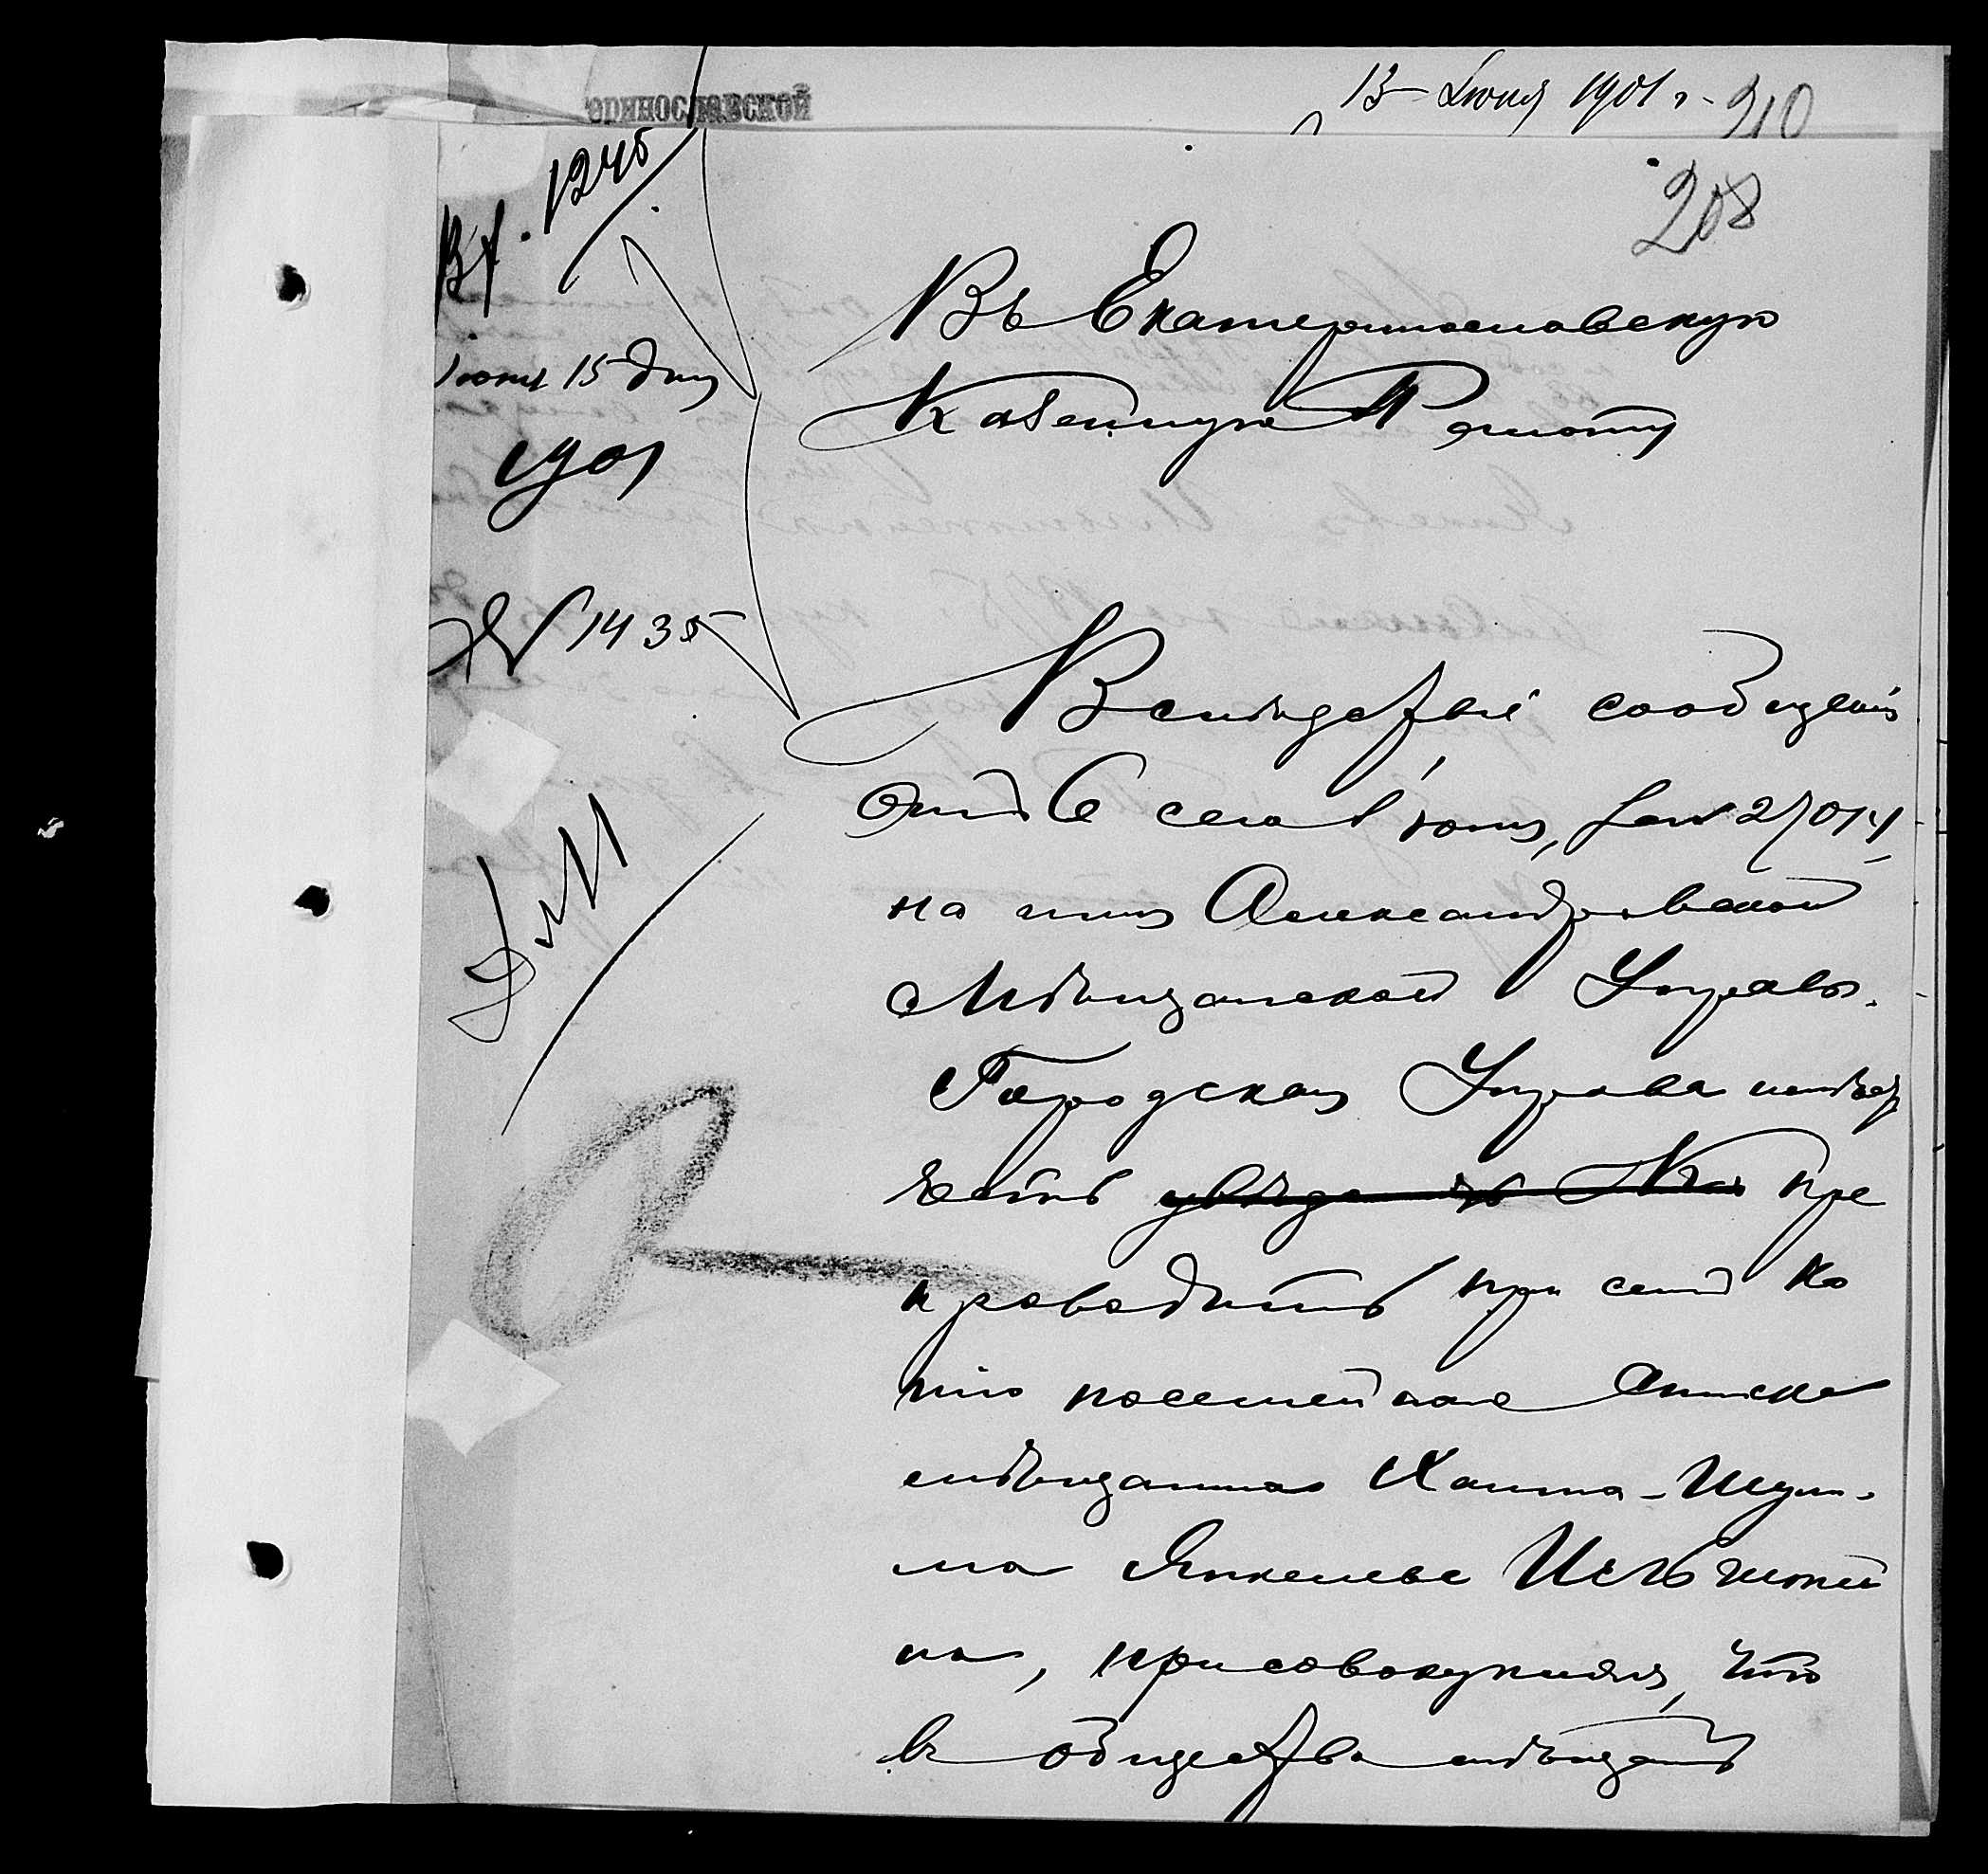 еринославской
13 Іюня 1901 г. 210
208
Вх. 1246
Іюня 15 дня
1901
№ 1435
Въ Екатеринославскую
Казенную Палату
Вслѣдствіе сообщенія
отъ 6 сего Іюня, за № 27014
на имя Александровской
Мѣщанской Управы,
Городская Управа имѣетъ
честь увѣдомить пре
проводить при семъ ко
пію посемейнаго списка
мѣщанина Хаима-Шули-
ма Янкелева Ицьчитей
на, присовокупляя, что
въ общества мѣщанъ